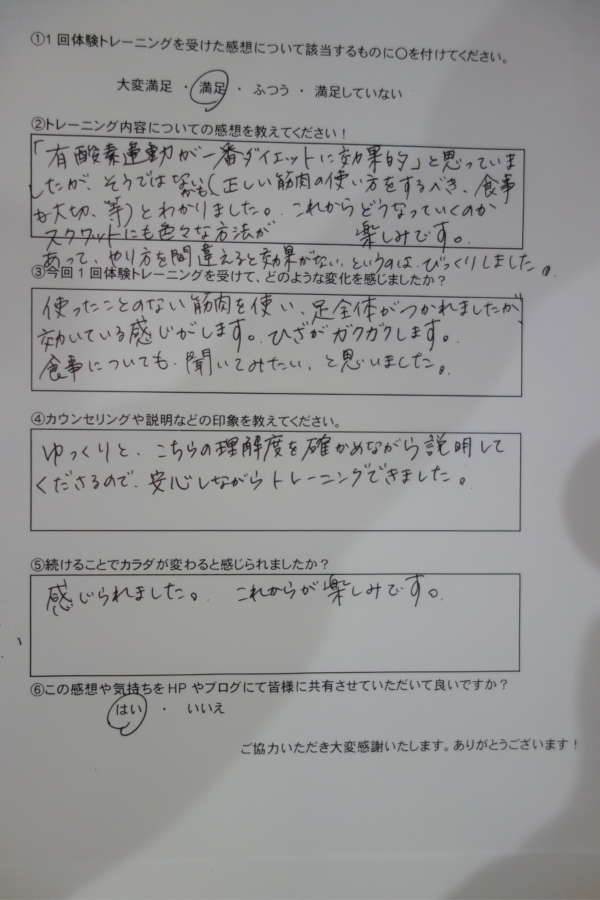 ①1回体験トレーニングを受けた感想について該当するものに〇を付けてください。
大変満足 ・ 満足 ・ ふつう ・ 満足していない
②トレーニング内容についての感想を教えてください！
「有酸素運動が一番ダイエットに効果的」と思っていま
したが、そうではないかも(正しい筋肉の使い方をするべき、食事
も大切、等)とわかりました。これからどうなっていくのか
楽しみです。
スクワットにも色々な方法が
あって、やり方を間違えると効果がない、というのは、びっくりしました。
③今回1回体験トレーニングを受けて、どのような変化を感じましたか？
使ったことのない筋肉を使い、足全体がつかれましたが、
効いている感じがします。ひざがガクガクします。
食事についても、聞いてみたい、と思いました。
④カウンセリングや説明などの印象を教えてください。
ゆっくりと、こちらの理解度を確かめながら説明して
くださるので、安心しながらトレーニングできました。
⑤続けることでカラダが変わると感じられましたか？
感じられました。これからが楽しみです。
⑥この感想や気持ちをHPやブログにて皆様に共有させていただいて良いですか？
はい ・ いいえ
ご協力いただき大変感謝いたします。ありがとうございます！